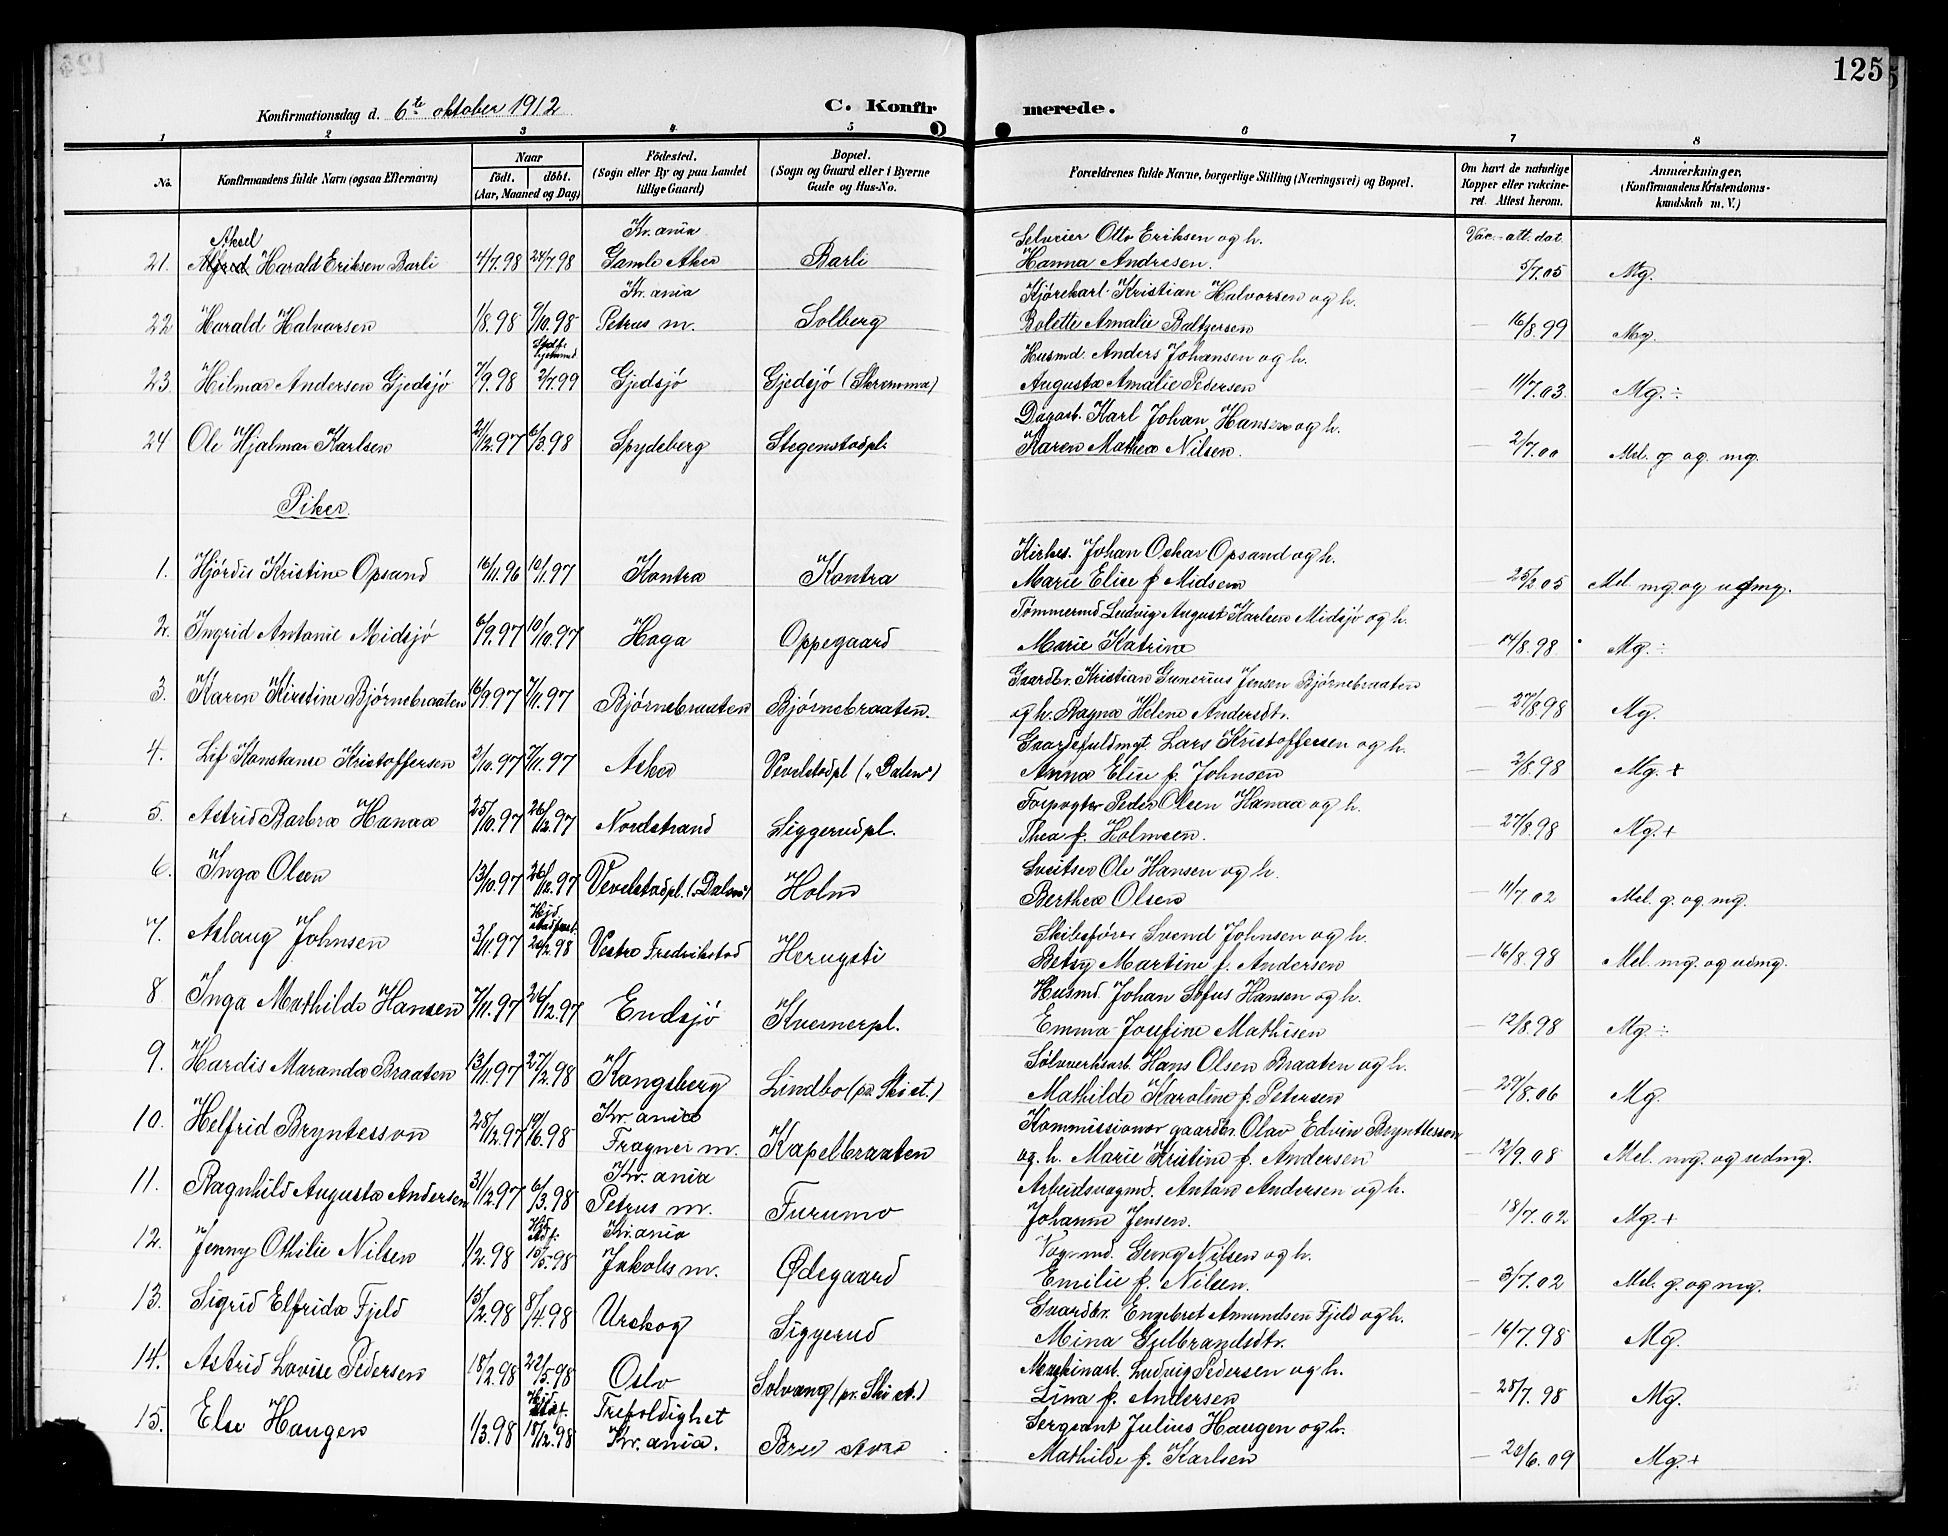 125
Konfirmationsdag d. 6te oktober 1912
C. Konfirmerede.
1 2 3 4 5 6 7 8
No.
Konfirmandens fulde Navn (ogsaa Efternavn)
Naar
født. døbt.
(Aar, Maaned og Dag)
Födested.
(Sogn eller By og paa Landet
tillige Gaard)
Bopæl.
(Sogn og Gaard eller i Byerne
Gade og Hus-No.
Forældrenes fulde Navne, borgerlige Stilling (Næringsvei) og Bopæl.
Om havt de naturlige
Kopper eller vakcine-
ret. Attest herom.
Anmærkninger,
(Konfirmandens Kristendoms-
kundskab m. V.)
Aksel Kr.ania Selveier Otto Eriksen og h. Vac.-att. dat.
21. Alfred Harald Eriksen Barli 4/7.98 24/7.98 Gamle Aker Barli Hanna Andresen. 5/7.05 Mg.
Kr.ania Kjørekarl Kristian Halvorsen og h.
22 Harald Halvorsen 1/8.98 9/10.98 Petrus m. Solberg Bolette Amalie Baltzersen — 16/8.99 Mg.
Husmd. Anders Johansen og h.
23. Hilmar Andersen Gjedsjö 7/9.98 2/7.99 Gjedsjö Gjedsjö (Skramma) Augusta Amalie Pedersen — 11/7.03 Mg. ÷
Dagarb. Karl Johan Hansen og h.
24 Ole Hjalmar Karlsen 21/12.97 6/3.98 Spydeberg Stegenstadpl. Karen Mathea Nilsen. — 2/7.00 Mel. g og. mg.
Piker.
Kirkes. Johan Oskar Opsand og h.
1. Hjördis Kristine Opsand 16/11.96 10/1.97 Kontra Kontra Marie Elise f. Midsem — 25/2.05 Mel. mg. og udmg.
Tømmermd Ludvig August Karlsen Midsjö og h.
2. Ingrid Antonie Midsjö 6/9.97 10/10.97 Haga Oppegaard Marie Katrine — 14/8.98 Mg. ÷
Gaardbr. Kristian Gunerius Jensen Bjørnebraaten
3. Karen Kirstine Bjørnebraaten 16/9.97 7/11.97 Bjørnebraaten Bjørnebraaten. og h. Ragna Helene Andersdtr. — 27/8.98 Mg.
Gaardsfuldmgt. Lars Kristoffersen og h.
4. Lif Konstanse Kristoffersen 2/10.97 7/11.97 Asker Vevelstadpl („Dalen") Anna Elise f. Johnsen — 2/8.98 Mg. +
Forpagter Peder Olsen Hanaa og h.
5. Astrid Barbra Hanaa 25/10.97 26/12.97 Nordstrand Siggerudpl. Thea f. Holmsen. — 27/8.98 Mg. +
Sveitser Ole Hansen og h.
6. Inga Olsen 13/10.97 26/12.97 Vevelstadpl. („Dalen") Holm Berthea Olsen — 11/7.02 Mel. g. og. mg.
Skibsfører Svend Johnsen og h.
7. Aslaug Johnsen 3/11.97 20/2.98 Vestre Fredrikstad Herugsti Betsy Martine f. Andersen — 16/8.98 Mel. mg. og udmg.
Husmd. Johan Sofus Hansen og h.
8 Inga Mathilde Hansen 7/11.97 26/12.97 Endsjö Kvernerpl. Emma Josefine Mathisen — 12/8.98 Mg ÷
Sølvverksarb. Hans Olsen Braaten og h.
9. Hardis Maranda Braaten 13/11.97 27/2.98 Kongsberg Lindbo (pr. Ski st.) Mathilde Karoline f. Petersen — 29/8.06 Mg.
Kr.ania Kommissionær gaardbr. Olav Edvin Bryntesson
10. Helfrid Bryntesson 28/12.97 19/6.98 Fragner m. Kapelbraaten og. h. Marie Kristine f. Andersen — 12/9.08 Mel. mg. og udmg.
Kr.ania Arbeidsvogmd. Anton Andersen og h.
11. Ragnhild Augusta Andersen 31/12.97 6/3.98 Petrus m. Furumo Johanne Jensen. — 18/7.02 Mg. +
Kr.ania Vogmd. Georg Nilsen og h.
12. Jenny Othilie Nilsen 1/2.98 15/5.98 Jakobs m. Ødegaard Emilie f. Nilsen. — 3/7.02 Mel. g. og mg.
Gaardbr. Engebret Amundsen Fjeld og h.
13. Sigrid Elfrida Fjeld 13/2.98 8/4.98 Urskog Siggerud Mina Gulbrandsdtr. — 16/7.98 Mg.
Maskinarb. Ludvig Pedersen og h.
14. Astrid Lovise Pedersen 18/2.98 22/5.98 Oslo Solvang (pr. Ski st.) Lina f. Andersen — 28/7.98 Mg.
Trefoldighet Sergeant Julius Haugen og h.
15. Else Haugen 1/3.98 18/12.98 Kr.ania. Bru store Mathilde f. Karlsen — 20/6.09 Mg. +